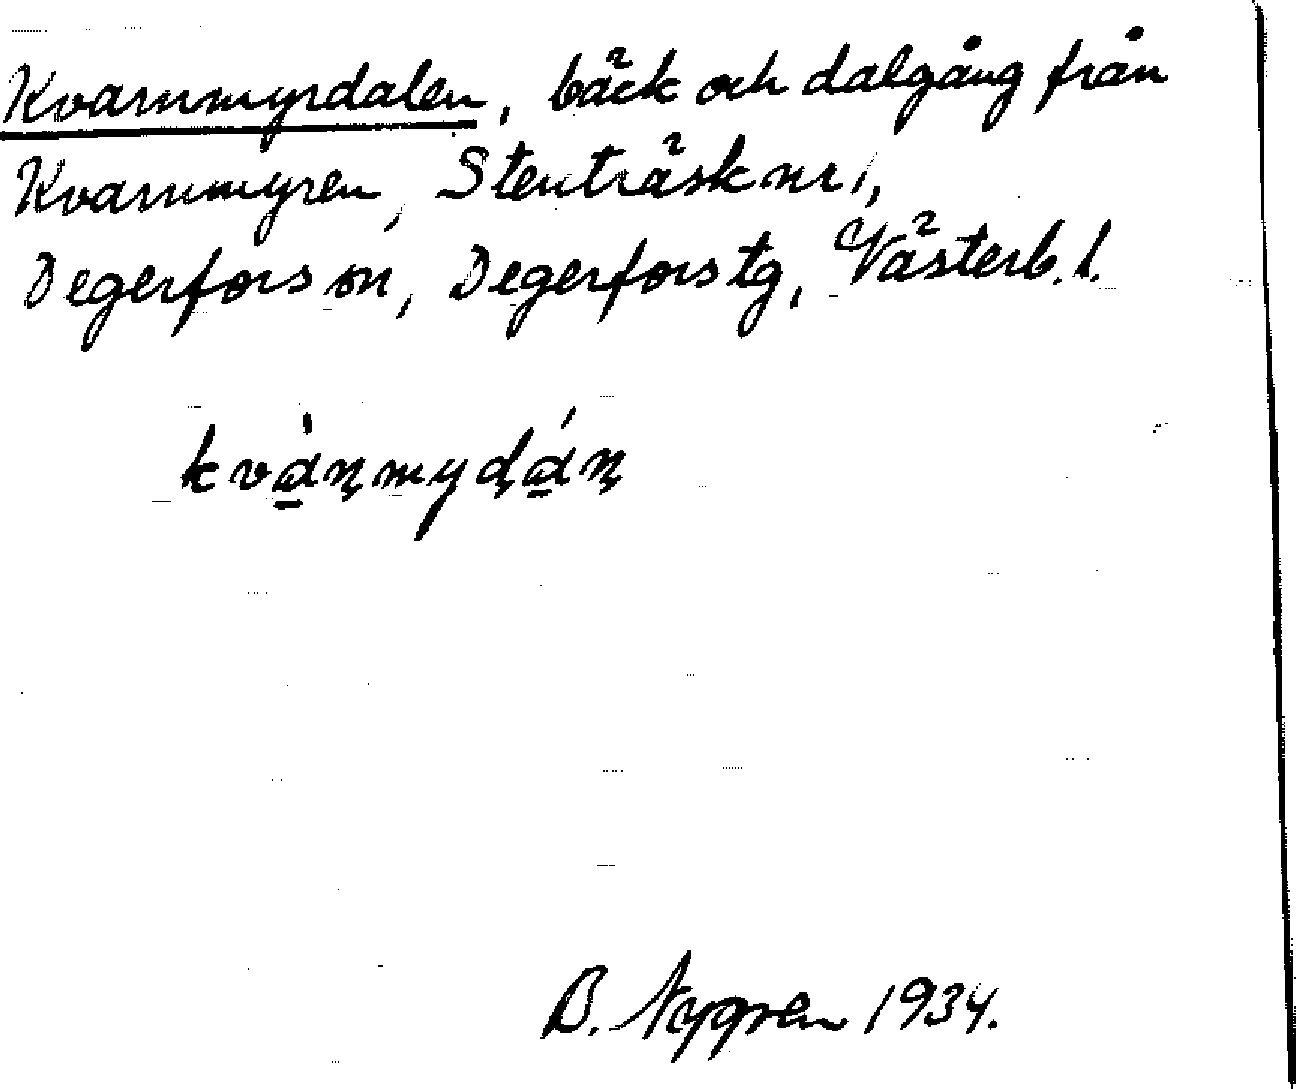 Kvarnmyrdalen, bäck och dalgång från
Kvarnmyren, Stenträsk nr 1,
Degerfors sn, Degerfors tg, Västerb. l.
kvà̱ɳmyɖá̱ɳ
B. Nygren 1934.